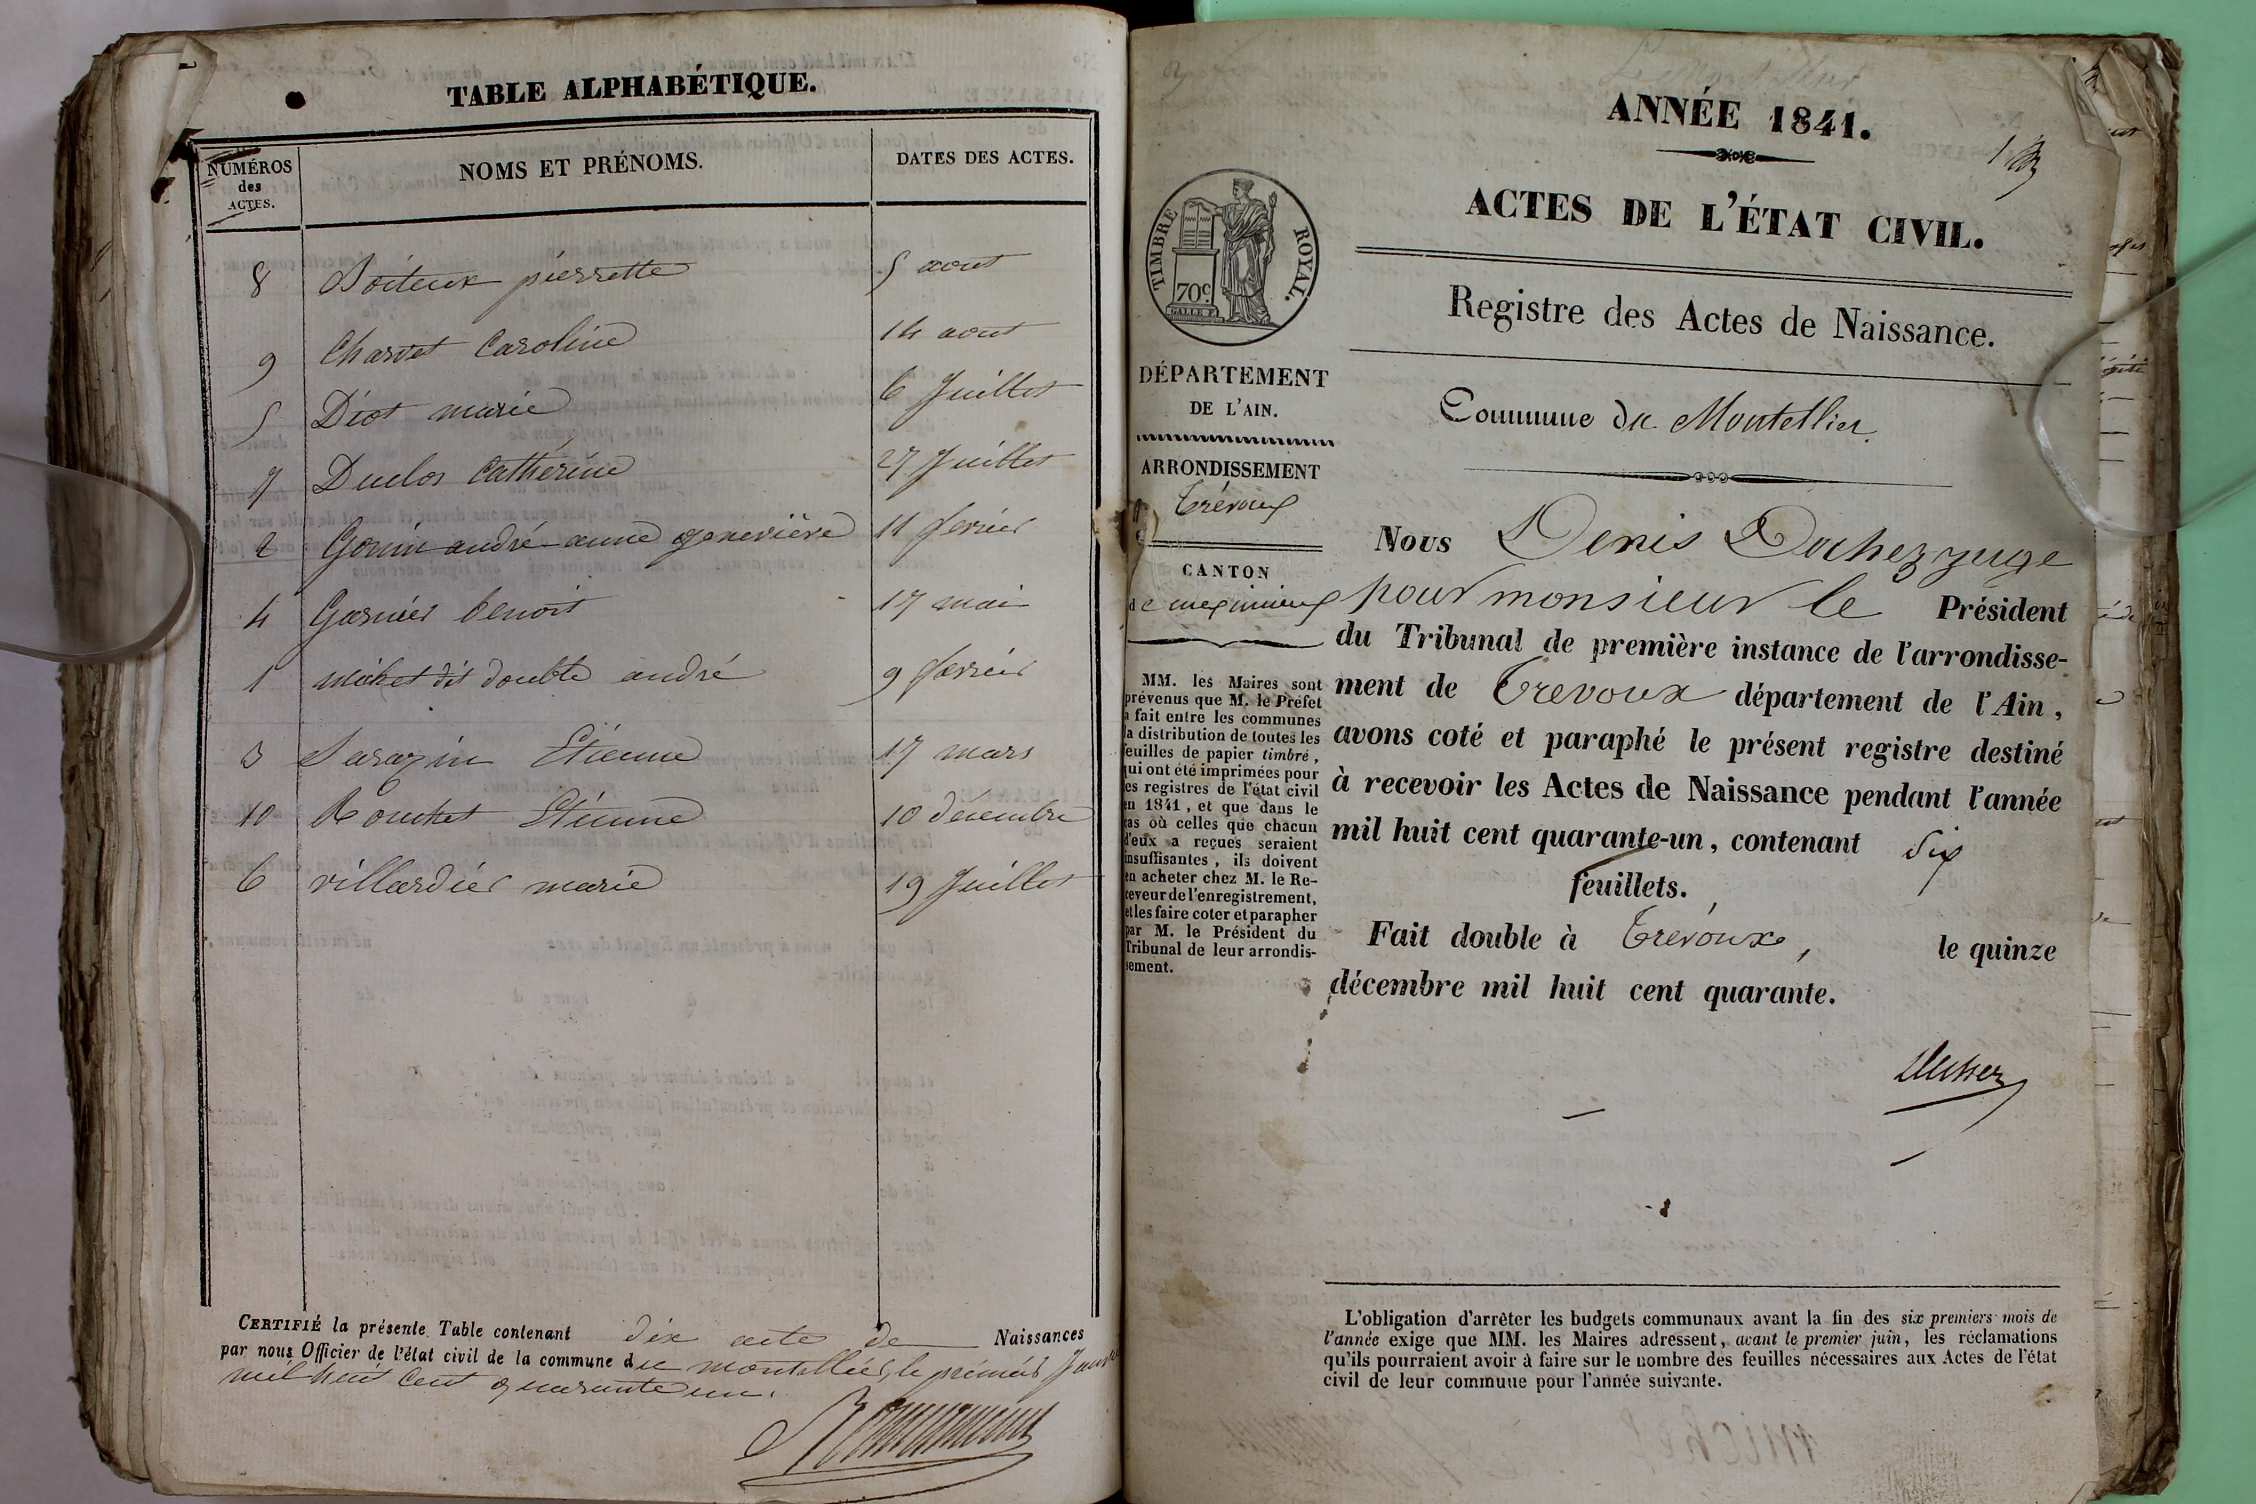 TABLE ALPHABÉTIQUE.
NUMÉROS
des
ACTES.
NOMS ET PRÉNOMS.
DATES DES ACTES.
8 Boiteux pierrette 5 aout
9 Charvet Caroline 14 aout
5 Diot marie 6 Juillet
7 Duclos Catherine 27 Juillet
2 Gonin andré anne geneviève 11 fevrier
4 Garnier benoit 17 mai
1 michet dit double andré 9 fevrier
3 Sarazin Etienne 17 mars
10 Rouchet Etienne 10 décembre
6 villardier marie 19 Juillet
CERTIFIÉ la présente Table contenant dix acte de Naissances
par nous Officier de l'état civil de la commune du montellier, le premier
mil huit cent quarante un.
ANNÉE 1841.
ACTES DE L'ÉTAT CIVIL.
Registre des Actes de Naissance.
Commune du Montellier.
TIMBRE ROYAL.
70c
DÉPARTEMENT
DE L'AIN.
ARRONDISSEMENT
Trévoux
CANTON
de meximieux
MM. les Maires sont
prévenus que M. le Préfet
a fait entre les communes
la distribution de toutes les
feuilles de papier timbré,
qui ont été imprimées pour
les registres de l'état civil
en 1841, et que dans le
cas où celles que chacun
d'eux a reçues seraient
insuffisantes, ils doivent
en acheter chez M. le Re-
ceveur de l'enregistrement,
et les faire coter et parapher
par M. le Président du
Tribunal de leur arrondis-
sement.
Nous Denis Dachez juge
pour monsieur le Président
du Tribunal de première instance de l'arrondisse-
ment de Trevoux département de l'Ain,
avons coté et paraphé le présent registre destiné
à recevoir les Actes de Naissance pendant l'année
mil huit cent quarante-un, contenant six
feuillets.
Fait double à Trévoux, le quinze
décembre mil huit cent quarante.
L'obligation d'arrêter les budgets communaux avant la fin des six premiers mois de
l'année exige que MM. les Maires adressent, avant le premier juin, les réclamations
qu'ils pourraient avoir à faire sur le nombre des feuilles nécessaires aux Actes de l'état
civil de leur commune pour l'année suivante.